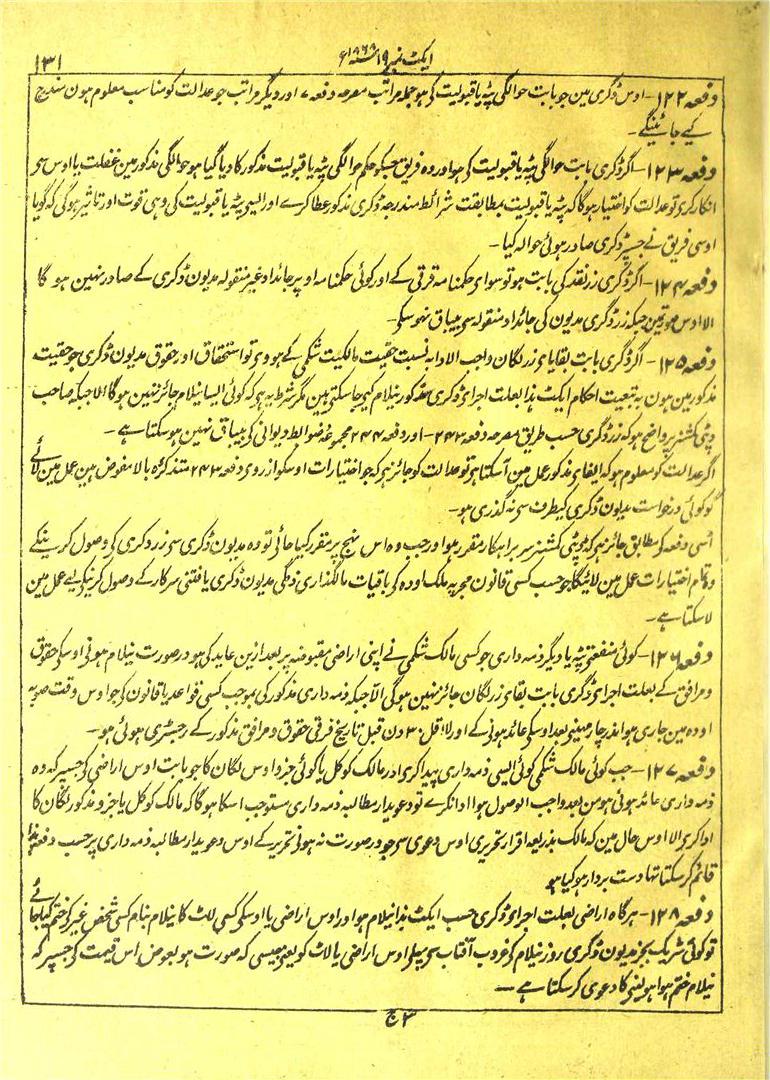 ۱۳۱
ایکٹ نمبر ۱۹ سنہ ۱۸۶۸ء
دفعہ ۱۲۲ - اوس ڈگری مین جو بابت حوالگی پٹہ یا قبولیت کی ہو جملہ مراتب مصرحہ دفعہ ۷ اور دیگر مراتب جو عدالت کو مناسب معلوم ہون مندرج
کیے جائینگے -
دفعہ ۱۲۳ - اگر ڈگری بابت حوالگی پٹہ یا قبولیت کی ہو اور وہ فریق جسکو حکم حوالگی پٹہ یا قبولیت مذکور کا دیا گیا ہو حوالگی مذکور مین غفلت یا اوس سی
انکار کری تو عدالت کو اختیار ہوگا کہ پٹہ یا قبولیت بمطابقت شرائط مندرجہ ڈگری مذکور عطا کرے اور ایسی پٹہ یا قبولیت کی وہی قوت اور تاثیر ہوگی کہ گویا
اوسی فریق نے جسپر ڈگری صادر ہوئی حوالہ کیا -
دفعہ ۱۲۴ - اگر ڈگری زر نقد کی بابت ہو تو سوای حکمنامہ قرقی کے اور کوئی حکمنامہ اوپر جائداد غیر منقولہ مدیون ڈگری کے صادر نہین ہوگا
الا اوس صورتمین جبکہ زر ڈگری مدیون کی جائداد منقولہ سی بیباق نہوسکی -
دفعہ ۱۲۵ - اگر ڈگری بابت بقایای زر لگان واجب الادا بہ نسبت حقیت مالکیت شکمی کے ہووی تو استحقاق اور حقوق مدیون ڈگری جو حقیت
مذکور مین ہون بہ تبعیت احکام ایکٹ ہذا بعلت اجرای ڈگری مذکور نیلام کیے جاسکتی ہین مگر شرط یہ ہی کہ کوئی ایسا نیلام جائز نہین ہوگا الا جبکہ صاحب
ڈپٹی کمشنر پر واضح ہو کہ زر ڈگری حسب طریق مصرحہ دفعہ ۲۴۳ - اور دفعہ ۲۴۴ مجموعہ ضوابط دیوانی کی بیباق نہین ہوسکتا ہے -
اگر عدالت کو معلوم ہو کہ ایفای مذکور عمل مین آسکتا ہی تو عدالت کو جائز ہی کہ جو اختیارات اوسکو از روی دفعہ ۲۴۳ متذکرہ بالا مفوض ہین عمل مین لائے
گو کوئی درخواست مدیون ڈگری کیطرف سی نہ گذری ہو -
اسی دفعہ کی مطابق جائز ہی کہ ڈپٹی کمشنر سربراہکار مقرر ہو اور جب وہ اس نہج پر مقرر کیا جائی تو وہ مدیون ڈگری سی زر ڈگری کی وصول کرینکے
وہ تمام اختیارات عمل مین لائیگا جو حسب کسی قانون مجریہ ملک اودہ کی باقیات مالگذاری ذمگی مدیون ڈگری یافتنی سرکار کے وصول کرینکے لیے عمل مین
لا سکتا ہے -
دفعہ ۱۲۶ - کوئی منفعتی پٹہ یا دیگر ذمہ داری جو کسی مالک شکمی نے اپنی اراضی مقبوضہ پر بعد ازین عاید کی ہو در صورت نیلام ہونی اوسکی حقوق
و مرافق کے بعلت اجرای ڈگری بابت بقای زر لگان جائز نہین ہوگی الا جبکہ ذمہ داری مذکور کی بموجب کسی قواعد یا قانون کی جو اوس وقت صوبہ
اودہ مین جاری ہو اندر چار مہینے بعد اوسکی عائد ہونی کے اور لا اقل ۳۰ دن قبل تاریخ قرقی حقوق و مرافق مذکور کے رجسٹری ہوئی ہو -
دفعہ ۱۲۷ - جب کوئی مالک شکمی کوئی ایسی ذمہ داری پیدا کری اور مالک کو کل یا کوئی جزو اوس لگان کا جو بابت اوس اراضی کی جسپر کہ وہ
ذمہ داری عائد ہوئی ہو من بعد واجب الوصول ہو ادا نکرے تو دعویدار مطالبہ ذمہ داری مستوجب اسکا ہوگا کہ مالک کو کل یا جزو مذکور لگان کا
ادا کری الا اوس حال مین کہ مالک بذریعہ اقرار تحریری اوس دعوی سی جو در صورت نہ ہونی تحریر کے اوس دعویدار مطالبہ ذمہ داری پر حسب دفعہ ہذا
قائم کر سکتا تہا دست بردار ہو گیا ہو
دفعہ ۱۲۸ - ہرگاہ اراضی بعلت اجرای ڈگری حسب ایکٹ ہذا نیلام ہو اور اوس اراضی یا اوسکی کسی لاٹ کا نیلام بنام کسی شخص غیر کی ختم کیا جائے
تو کوئی شریک بجز مدیون ڈگری روز نیلام کی غروب آفتاب سی پہلی اوس اراضی یا لاٹ کو یعنی جیسی کہ صورت ہو بعوض اس قیمت کی جسپر کہ
نیلام ختم ہوا ہو لینی کا دعوی کر سکتا ہے -
۳ ج